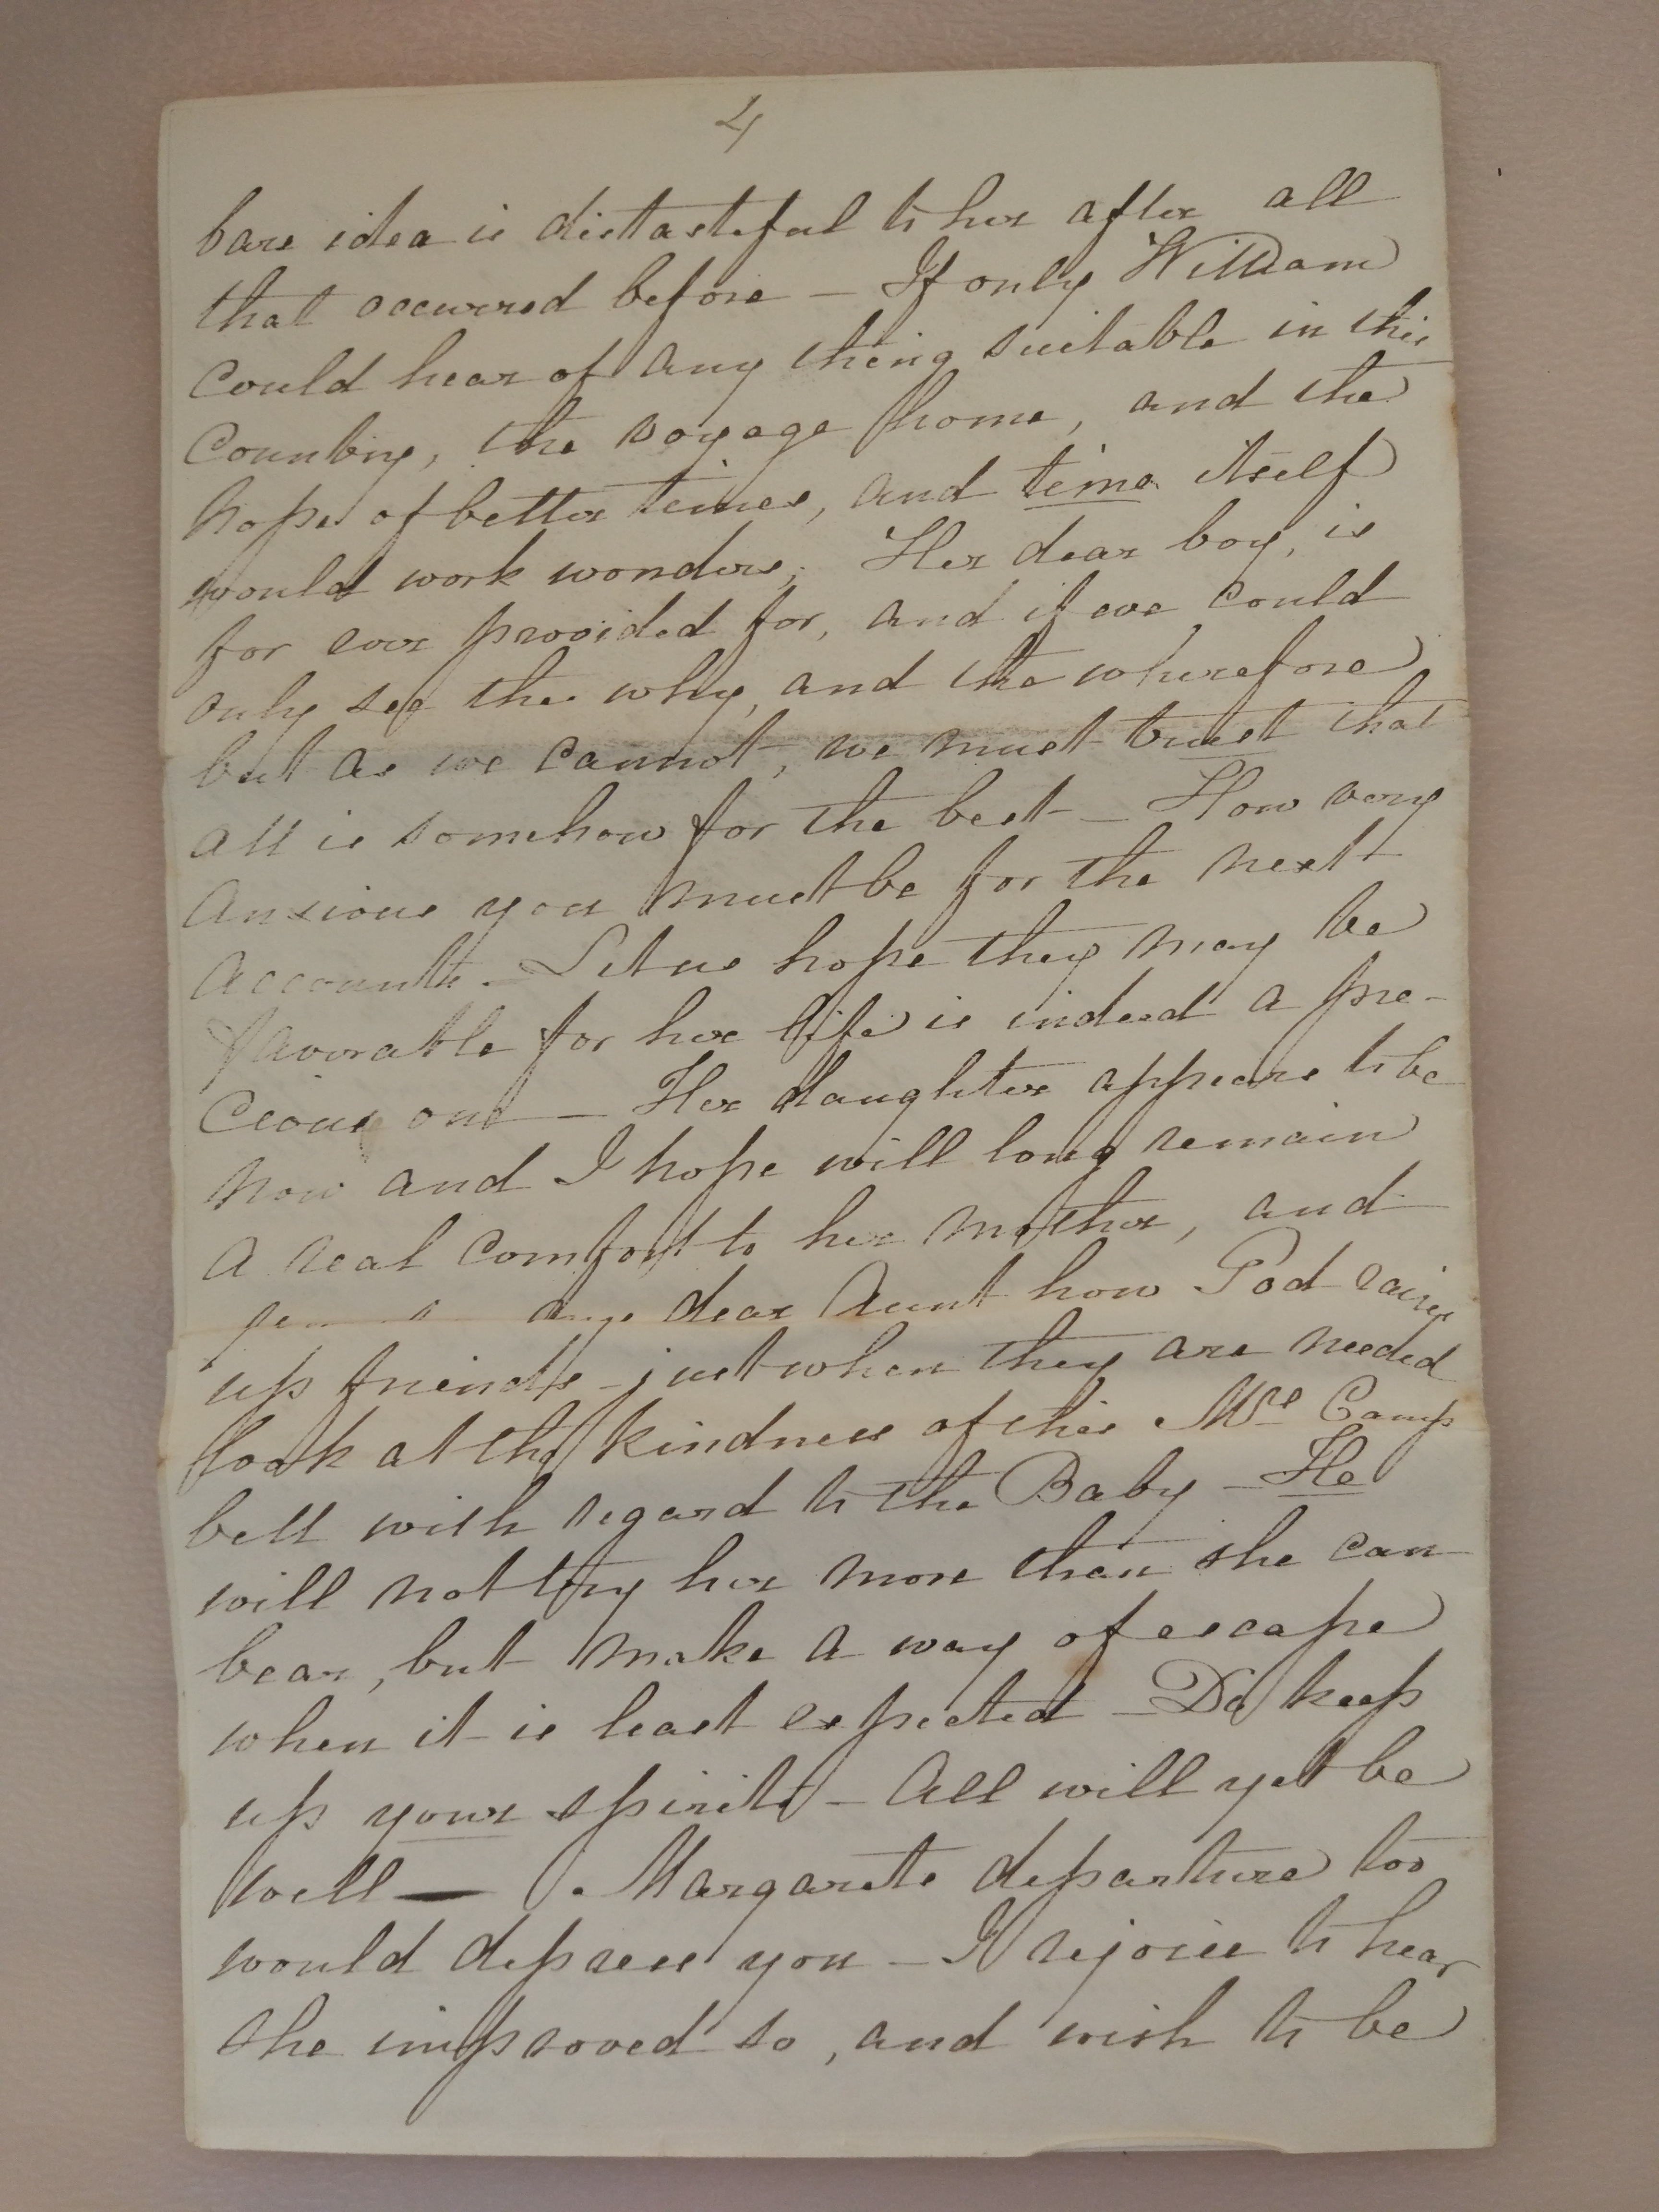 4
bare idea is distasteful to her after all
that occurred before — If only William
Could hear of any thing suitable in this
Country, the voyage home, and the
hope of better times, and time itself
would work wonders. Her dear boy, is
for ever provided for, and if we could
only see the why, and the wherefore,
but as we cannot, we must trust that
all is somehow for the best — How very
anxious you must be for the next
accounts. — Let us hope they may be
favorable for her life is indeed a pre-
cious one — Her daughter appears to be
now and I hope will long remain
a real comfort to her mother, and
dear Aunt how God raises
up friends just when they are needed
look at the kindness of this Mrs Camp
bell with regard to the Baby — He
will not try her more than she can
bear, but make a way of escape
when it is least expected — Do keep
up your spirits — All will yet be
well — Margarets departure too
would depress you — I rejoice to hear
she improved so, and wish to be